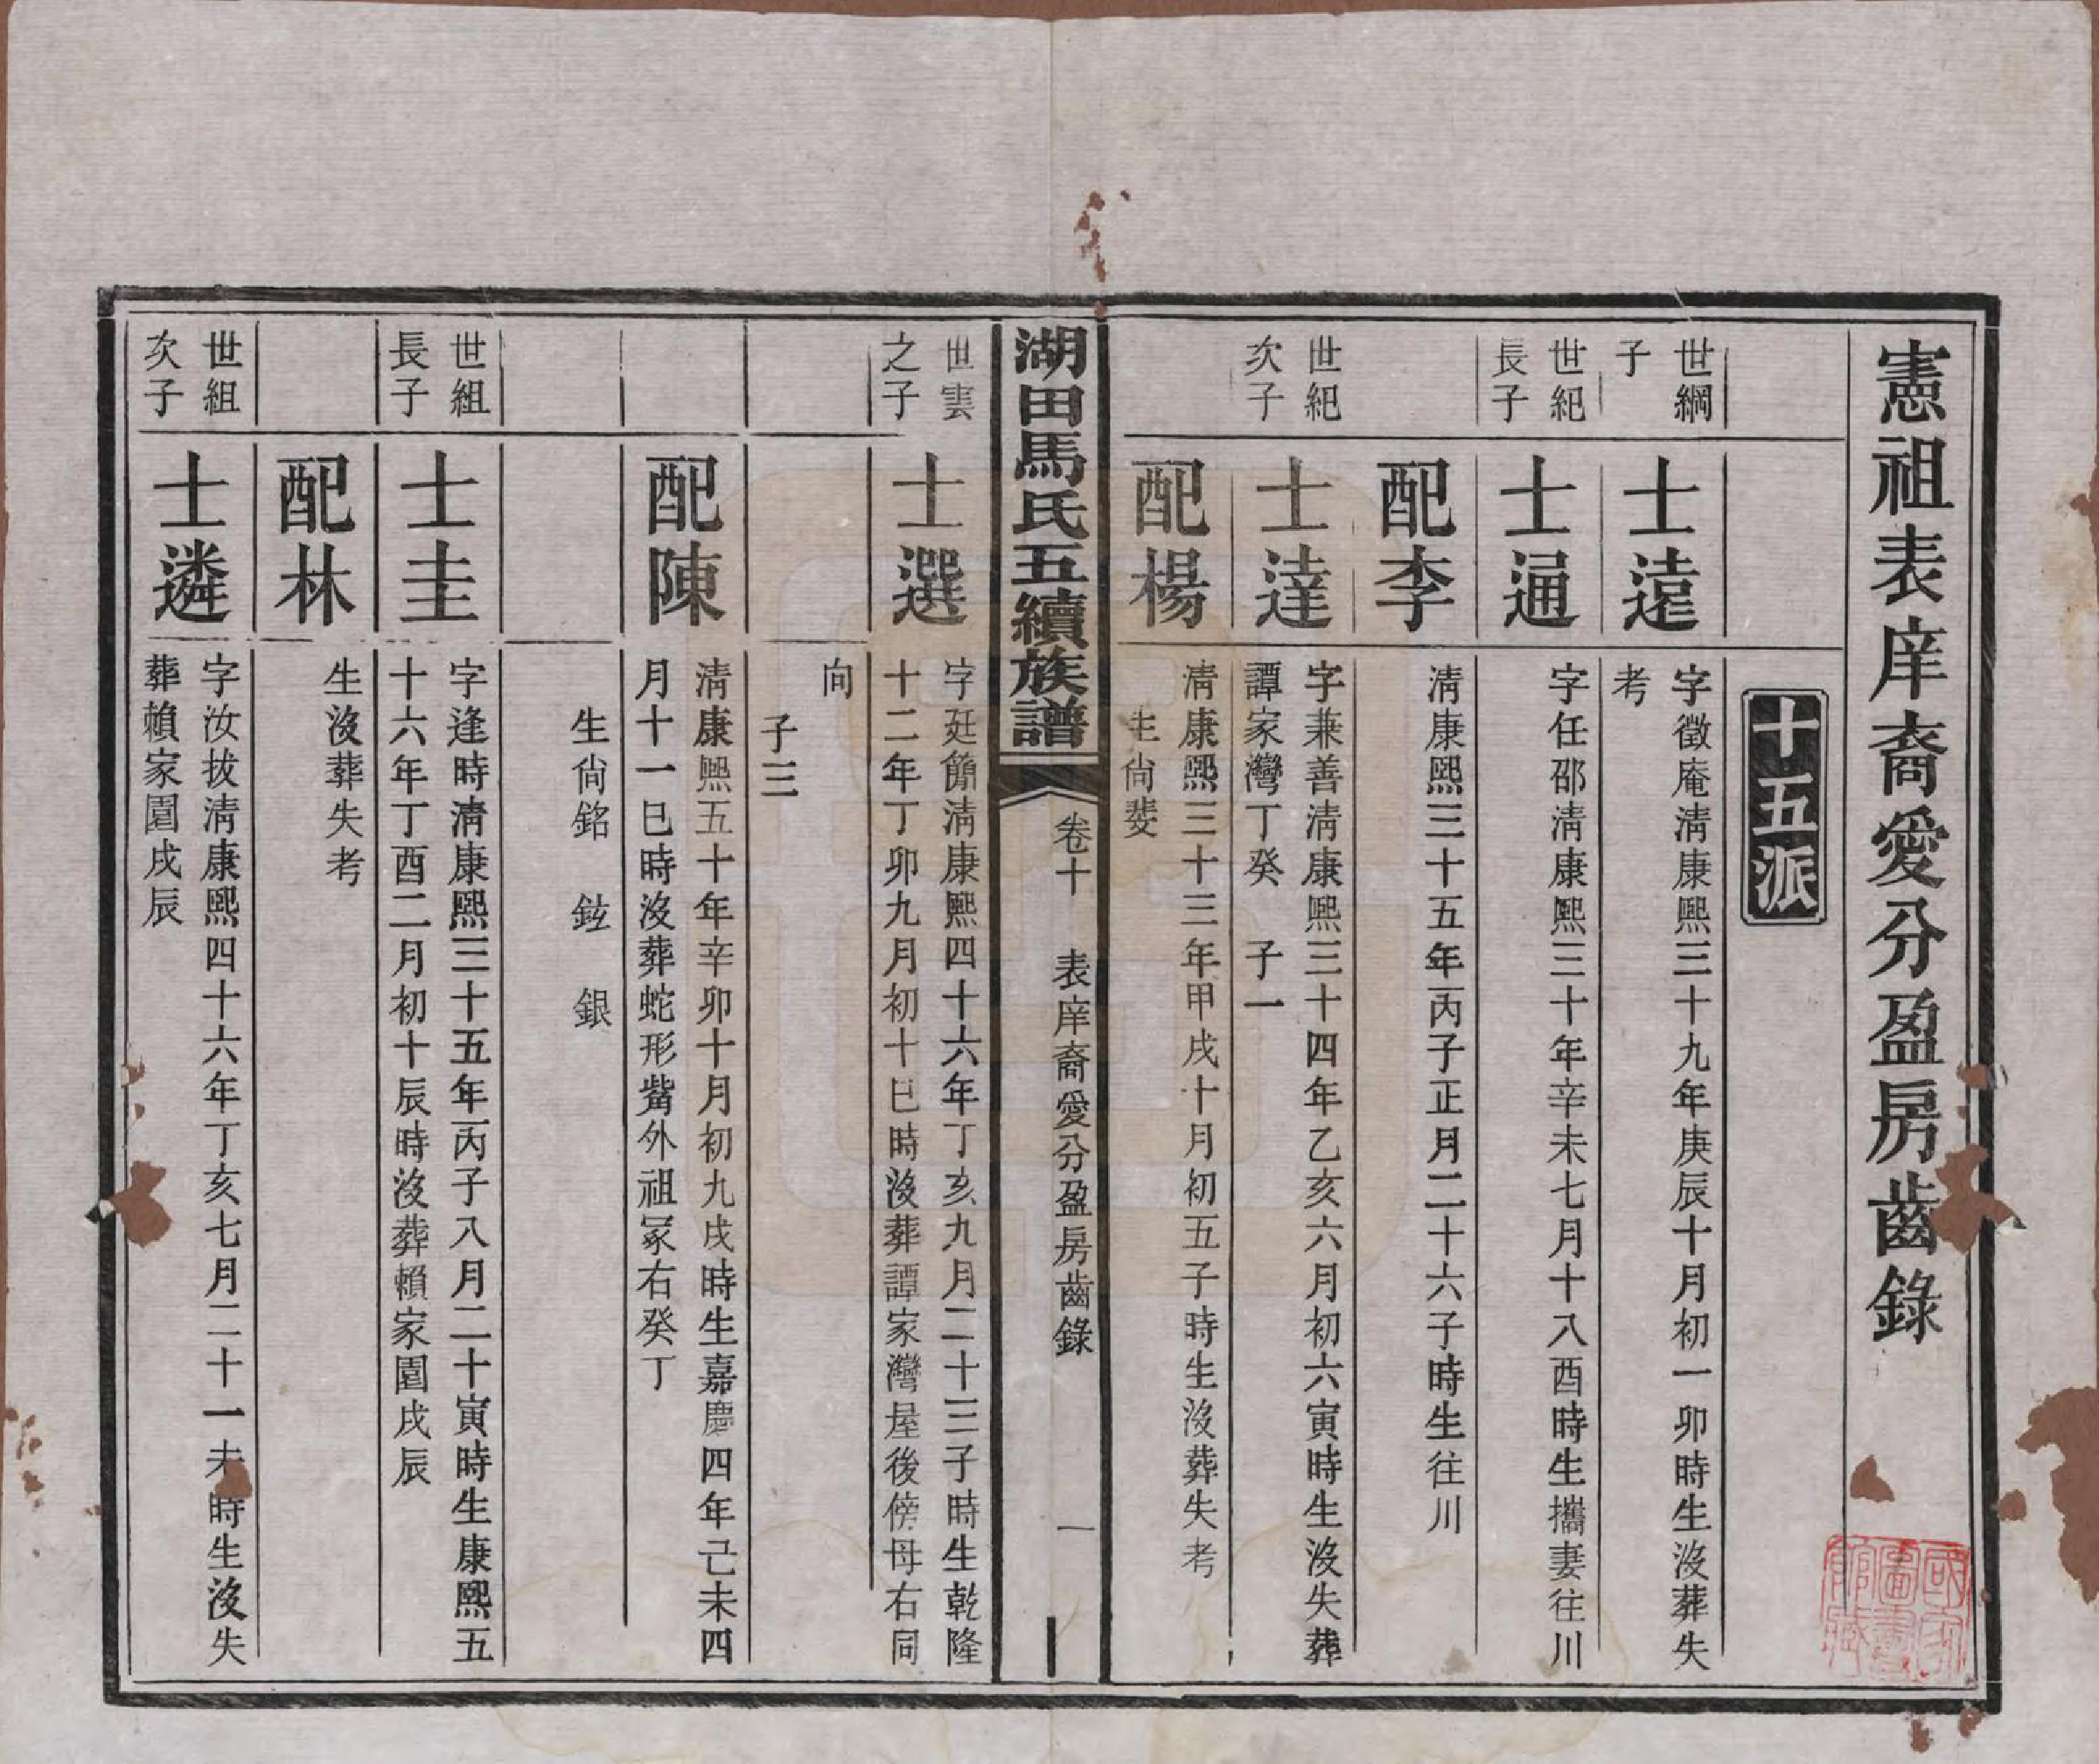 憲祖表庠裔愛分盈房齒錄
十五派
世綱
子
士遠
字徵庵淸康熙三十九年庚辰十月初一卯時生沒葬失
考
世紀
長子
士通
字任邵淸康熙三十年辛未七月十八酉時生攜妻往川
配李
淸康熙三十五年丙子正月二十六子時生往川
世紀
次子
士達
字兼善淸康熙三十四年乙亥六月初六寅時生沒失葬
譚家灣丁癸　子一
配楊
淸康熙三十三年甲戌十月初五子時生沒葬失考
生尙斐
湖田馬氏五續族譜
卷十　表庠裔愛分盈房齒錄　一
世雲
之子
士選
字廷簡淸康熙四十六年丁亥九月二十三子時生乾隆
十二年丁卯九月初十巳時沒葬譚家灣屋後傍母右同
向
子三
配陳
淸康熙五十年辛卯十月初九戌時生嘉慶四年己未四
月十一巳時沒葬蛇形觜外祖冢右癸丁
生尙銘　鉉　銀
世組
長子
士圭
字逢時淸康熙三十五年丙子八月二十寅時生康熙五
十六年丁酉二月初十辰時沒葬賴家園戌辰
配林
生沒葬失考
世組
次子
士遴
字汝拔淸康熙四十六年丁亥七月二十一未時生沒失
葬賴家園戌辰
國家
圖書
館藏